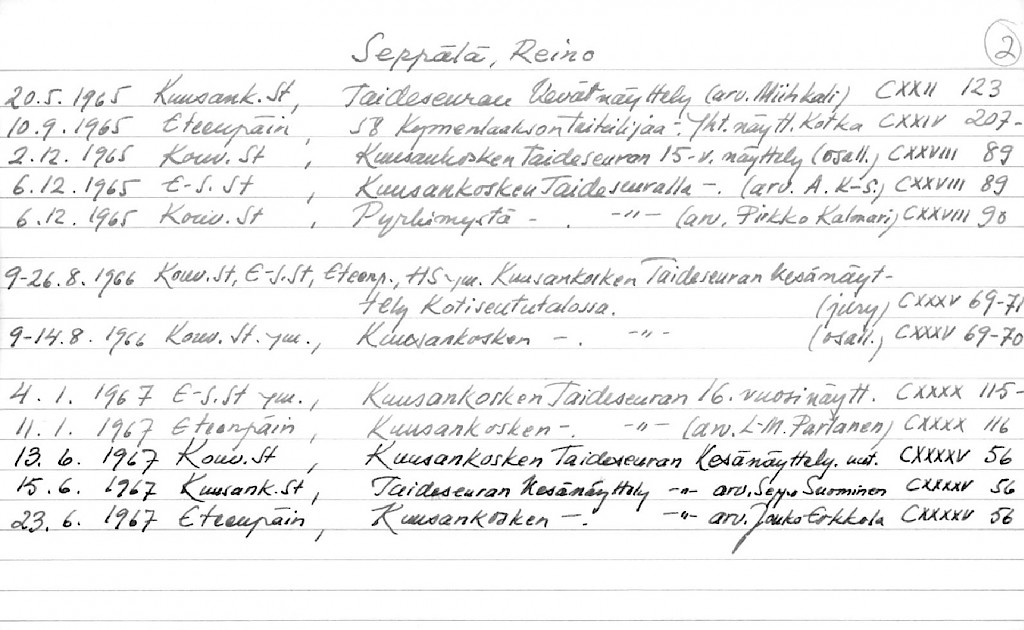 Seppälä, Reino 2
20.5.1965 Kuusank.St, Taideseuran Kevätnäyttely (arv. Miihkali) CXXII 123
10.9.1965 Eteenpäin, 58 Kymenlaakson taiteilijaa: Yht.näytt. Kotka CXXIV 207-
2.12.1965 Kouv.St, Kuusankosken Taideseuran 15-v. näyttely (osall.) CXXVIII 89
6.12.1965 E-S.St, Kuusankosken Taideseuralla -. (arv. A. K-S.) CXXVIII 89
6.12.1965 Kouv.St, Pyrkimystä -. -"- (arv. Pirkko Kalmari) CXXVIII 90
9-26.8.1966 Kouv.St, E-S.St, Eteenp., HS ym. Kuusankosken Taideseuran Kesänäyt-
tely Kotiseututalossa. (jury) CXXXV 69-71
9-14.8.1966 Kouv.St. ym., Kuusankosken -. -"- (osall.) CXXXV 69-70
4.1.1967 E-S.St ym., Kuusankosken Taideseuran 16. vuosinäytt. CXXXX 115-
11.1.1967 Eteenpäin, Kuusankosken -. -"- (arv. L-M. Partanen) CXXXX 116
13.6.1967 Kouv.St, Kuusankosken Taideseuran Kesänäyttely. uut. CXXXXV 56
15.6.1967 Kuusank.St, Taideseuran Kesänäyttely -"- arv. Seppo Suominen CXXXXV 56
23.6.1967 Eteenpäin, Kuusankosken -. -"- arv. Jouko Erkkola CXXXXV 56